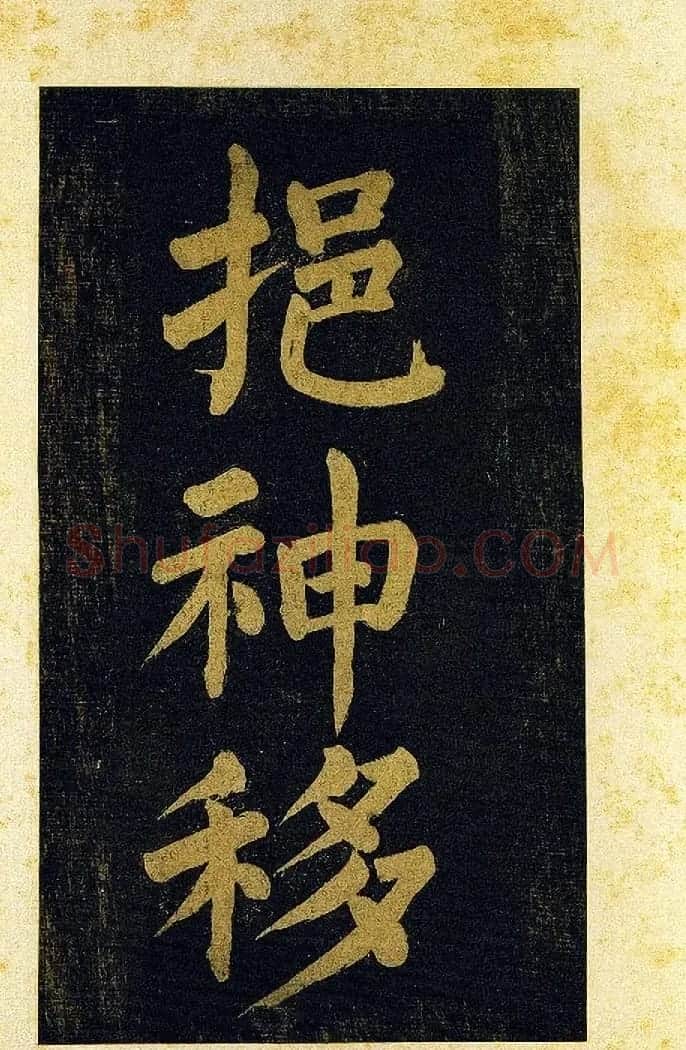 挹神移
Shufaziliao.COM